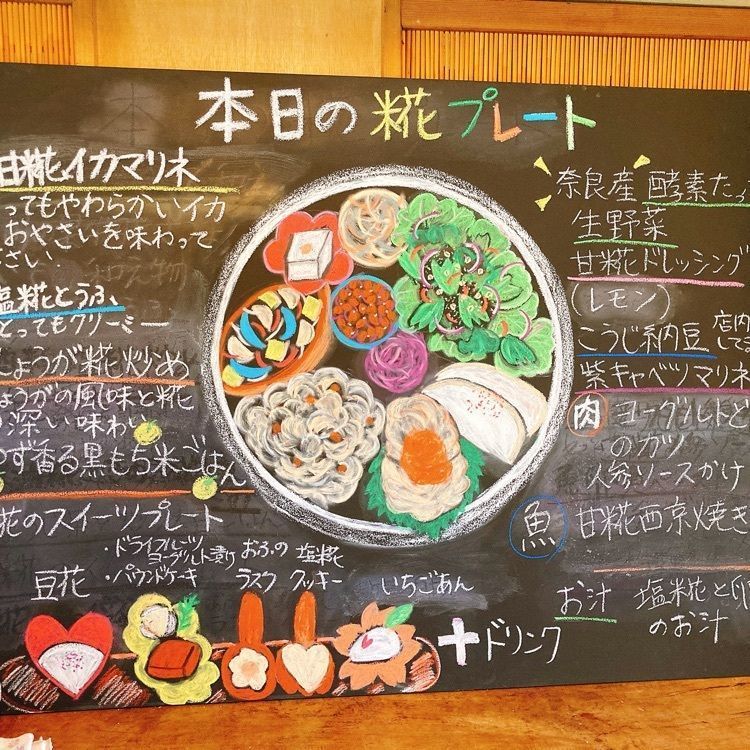 本日の糀プレート
甘糀イカマリネ
ってもやわらかいイカ
おやさいを味わって
さい。
塩糀とうふ
とってもクリーミー
しょうが糀炒め
ょうがの風味と糀
深い味わい
ず香る黒もち米ごはん
花のスイーツプレート
豆花
・ドライフルーツ
ヨーグルト漬け
・パウンドケーキ
おふの
ラスク
塩糀
クッキー
いちごあん
+ドリンク
奈良産 酵素たっ
生野菜
甘糀ドレッシング
(レモン)
こうじ納豆 店内
して
紫キャベツマリネ
肉 ヨーグルトと
のカツ
人参ソースかけ
魚 甘糀西京焼き
お汁 塩糀と卵
のお汁